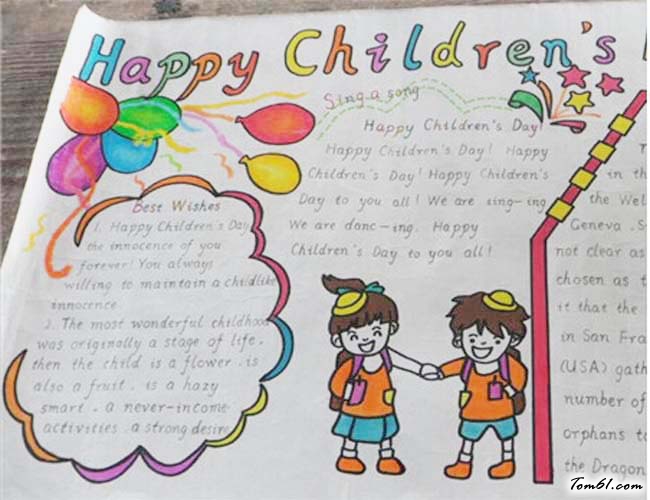 Happy Children's
Sing a song
Happy Children's Day!
Happy Children's Day! Happy
Children's Day! Happy Children's
Day to you all! We are sing-ing
We are danc-ing. Happy
Children's Day to you all!
Best Wishes
1. Happy Children's Day
the innocence of you
forever! You always
willing to maintain a childlike
innocence
2. The most wonderful childhood
was originally a stage of life.
then the child is a flower. is
also a fruit. is a hazy
smart. a never-income
activities. a strong desire
in the
the Wel
Geneva. S
not clear as
chosen as t
it that the
in San Fra
(USA) gath
number of
orphans to
the Dragon
Tom61.com